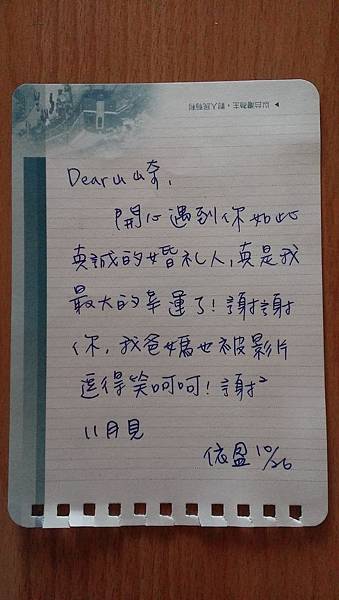 以台灣為主，對人民有利
Dear 山山奇,
開心遇到你如此
真誠的婚礼人,真是我
最大的幸運了!謝謝
你,我爸媽也被影片
逗得笑呵呵!謝²
11月見
依盈 10/26